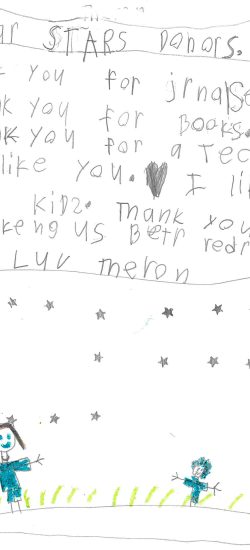 ar STARS Donors.
k you for jrnalse
nk you for Books.
nk you for a Tec
like you. I li
Kids. Thank you
keng us Betr redr
Luv meron